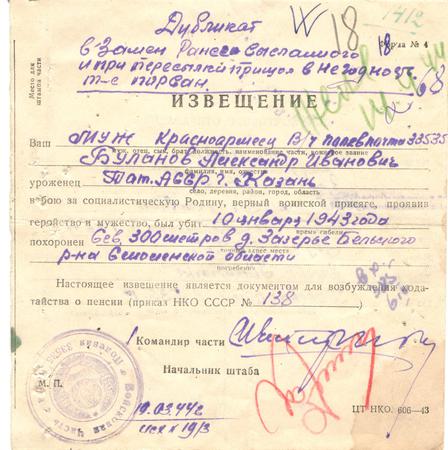 Дубликат
в замен Ранее высланного
и при пересылки пришол в негодность
т-е порван.
18
1412
18
Форма № 4
Место для
штампа части
68
ИЗВЕЩЕНИЕ
Ваш муж Красноармеец В/ч полевпочта 33535
муж, отец, сын, брат, должность, наименование части, военное звание
Буланов Александр Иванович
фамилия, имя, отчество
уроженец Тат. АССР г. Казань
село, деревня, район, город, область
в бою за социалистическую Родину, верный воинской присяге, проявив
геройство и мужество, был убит 10 января 1943 года
время гибели
похоронен Сев. 300 метров д. Зазерье Бельского
р-на Смоленской области
погребение
Настоящее извещение является документом для возбуждения хода-
тайства о пенсии (приказ НКО СССР № 138)
Командир части
Начальник штаба
М. П.
Войсковая Часть
Полевая
19.03.44 г
исх № 19/3
ЦТ НКО. 606—43